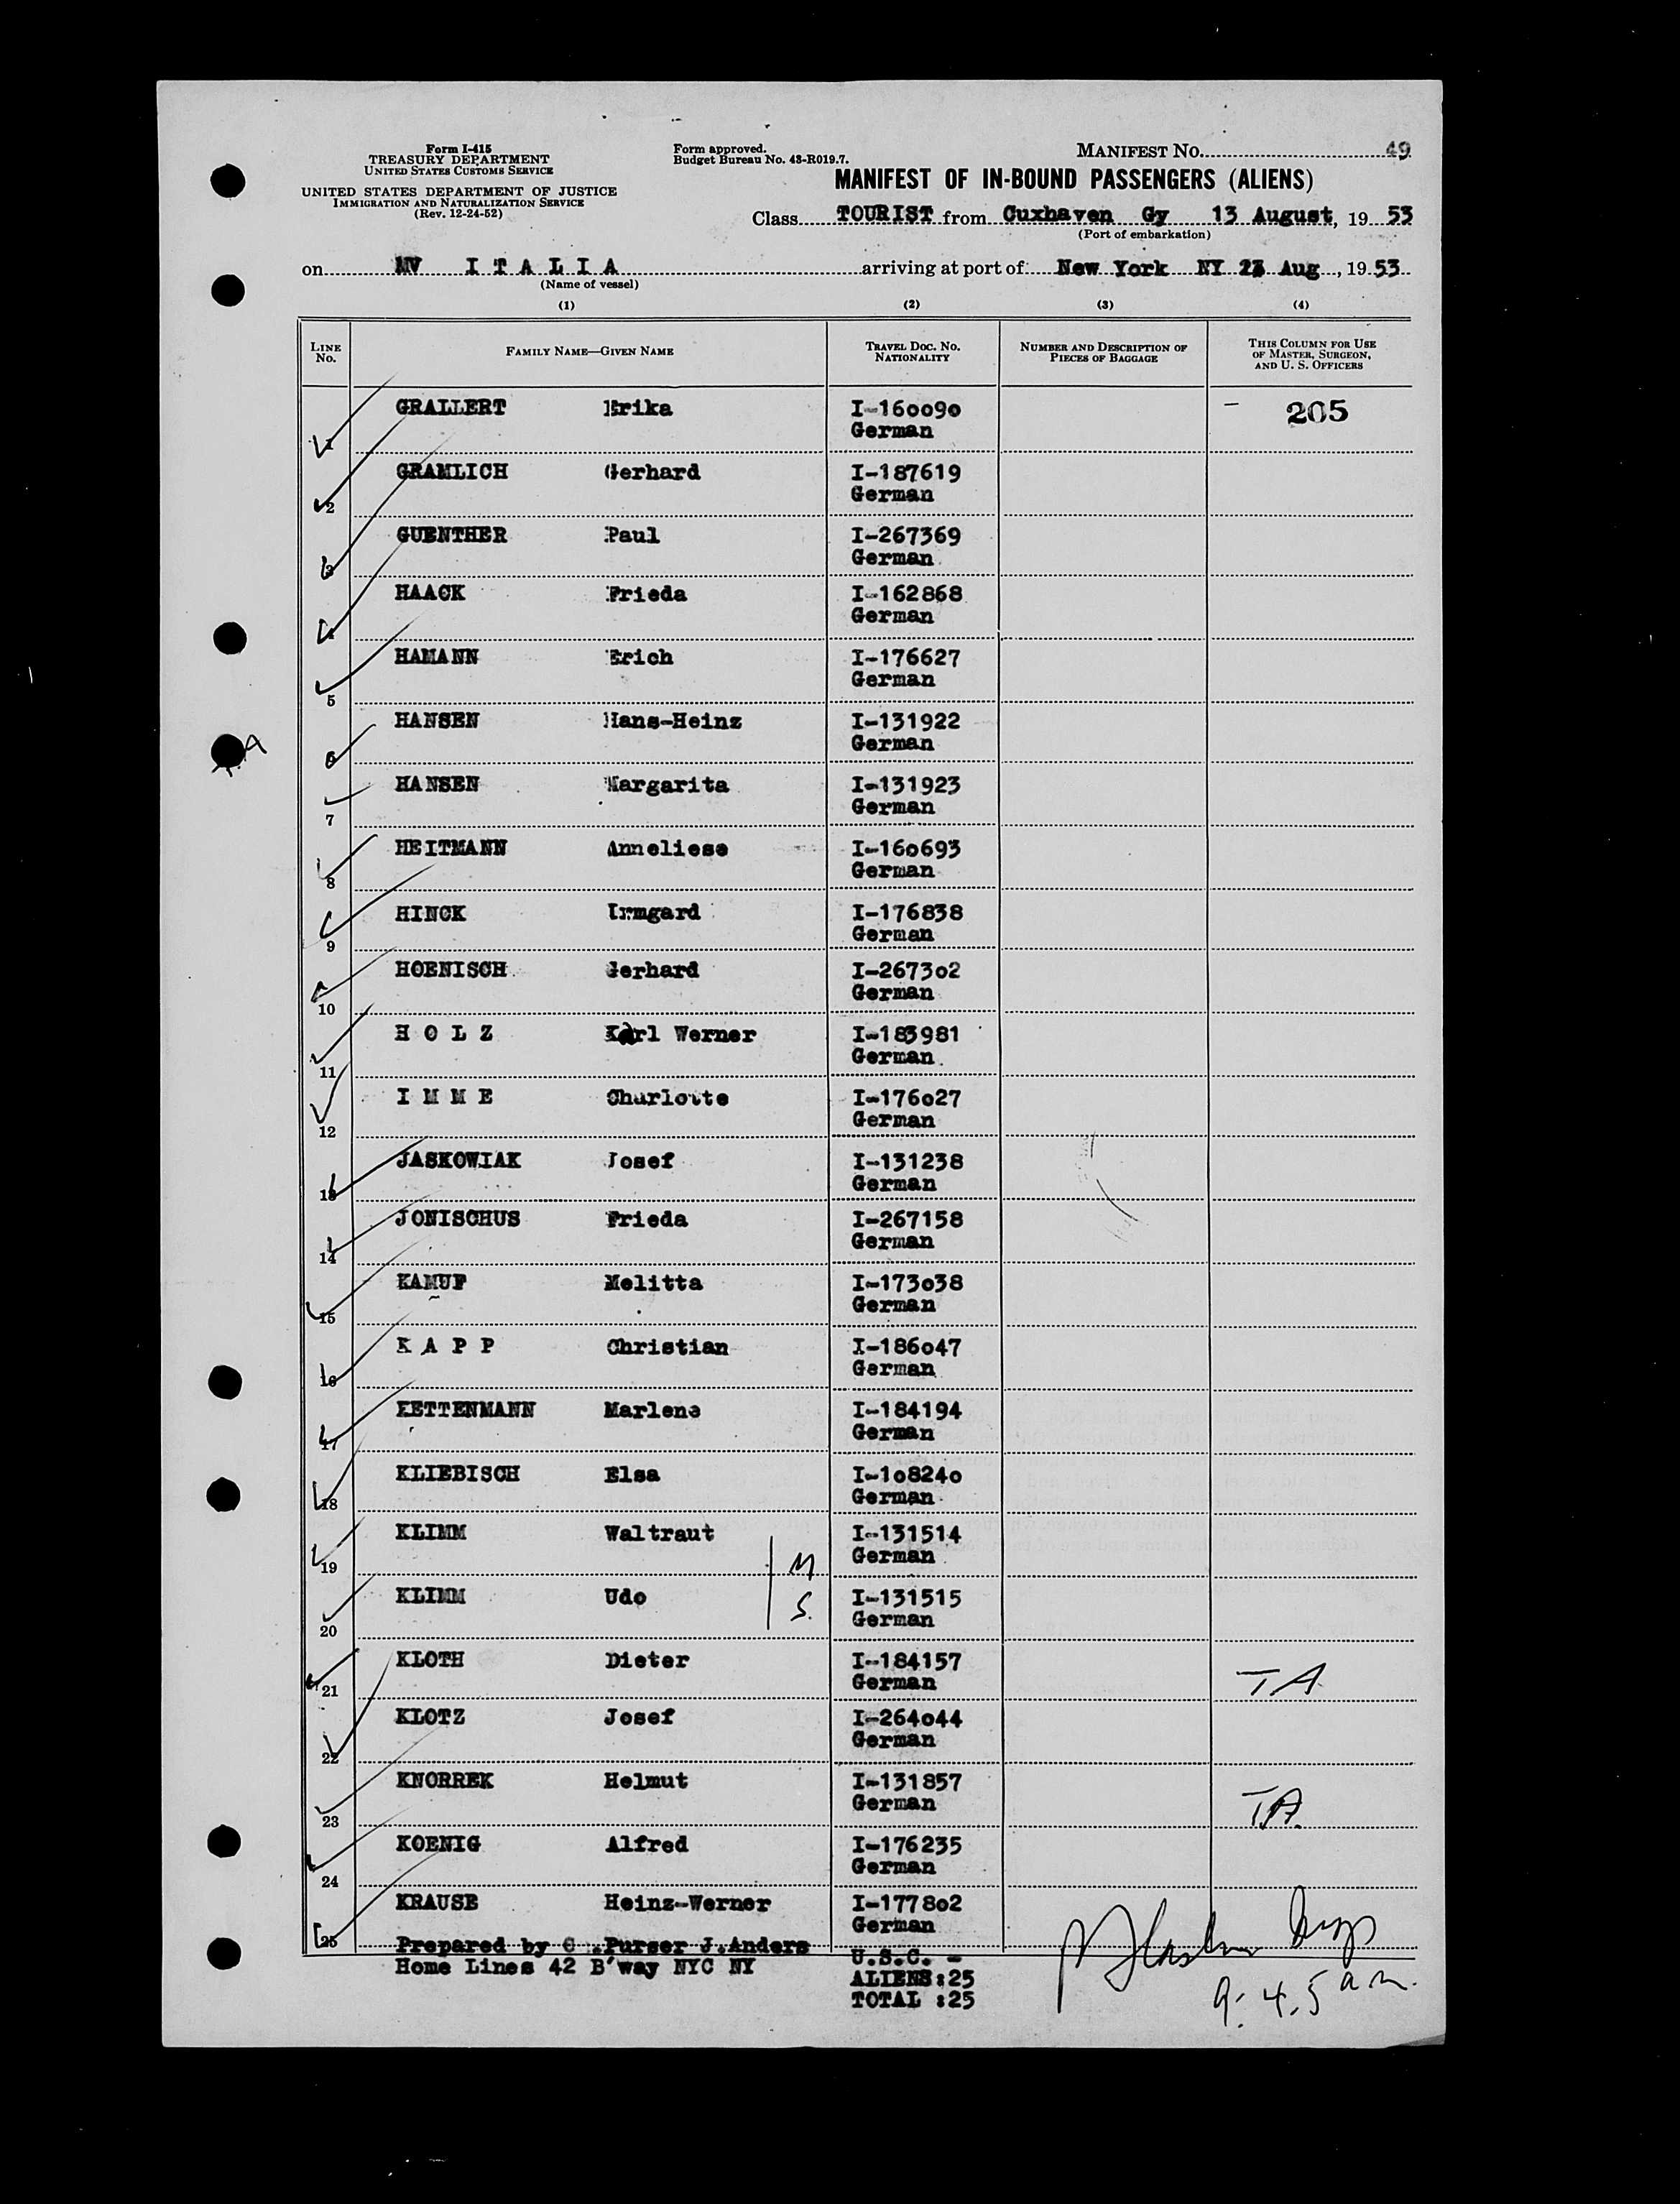 Form I-415
TREASURY DEPARTMENT
UNITED STATES CUSTOMS SERVICE
UNITED STATES DEPARTMENT OF JUSTICE
IMMIGRATION AND NATURALIZATION SERVICE
(Rev. 12-24-52)
Form approved.
Budget Bureau No. 43-R019.7.
MANIFEST NO. 49
MANIFEST OF IN-BOUND PASSENGERS (ALIENS)
Class TOURIST from Cuxhaven Gy 13 August, 19 53
(Port of embarkation)
on MV I T A L I A arriving at port of New York NY Aug , 19 53
(Name of vessel)
(1) (2) (3) (4)
LINE NO. FAMILY NAME—GIVEN NAME TRAVEL DOC. NO. NATIONALITY NUMBER AND DESCRIPTION OF PIECES OF BAGGAGE THIS COLUMN FOR USE OF MASTER, SURGEON, AND U. S. OFFICERS
1 GRALLERT Erika I-160090 German - 205
2 GRAMLICH Gerhard I-187619 German
3 GUENTHER Paul I-267369 German
4 HAACK Frieda I-162868 German
5 HAMANN Erich I-176627 German
6 HANSEN Hans-Heinz I-131922 German
7 HANSEN Margarita I-131923 German
8 HEITMANN Anneliese I-160693 German
9 HINCK Irmgard I-176838 German
10 HOENISCH Gerhard I-267302 German
11 H O L Z Karl Werner I-183981 German
12 I M M E Charlotte I-176027 German
13 JASKOWIAK Josef I-131238 German
14 JONISCHUS Frieda I-267158 German
15 KAMUF Melitta I-173038 German
16 K A P P Christian I-186047 German
17 KETTENMANN Marlene I-184194 German
18 KLIEBISCH Elsa I-108240 German
19 KLIMM Waltraut M I-131514 German
20 KLIMM Udo S. I-131515 German
21 KLOTH Dieter I-184157 German TA
22 KLOTZ Josef I-264044 German
23 KNORREK Helmut I-131857 German TA.
24 KOENIG Alfred I-176235 German
25 KRAUSE Heinz-Werner I-177802 German
Prepared by C .Purser J.Anders
Home Lines 42 B'way NYC NY
U.S.C. -
ALIENS:25
TOTAL :25
9:45 am.